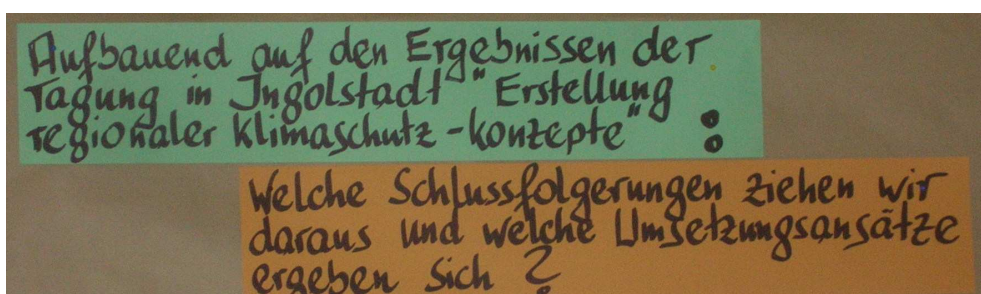 Aufbauend auf den Ergebnissen der
Tagung in Ingolstadt "Erstellung
regionaler Klimaschutz-konzepte" :
Welche Schlussfolgerungen ziehen wir
daraus und welche Umsetzungsansätze
ergeben sich ?